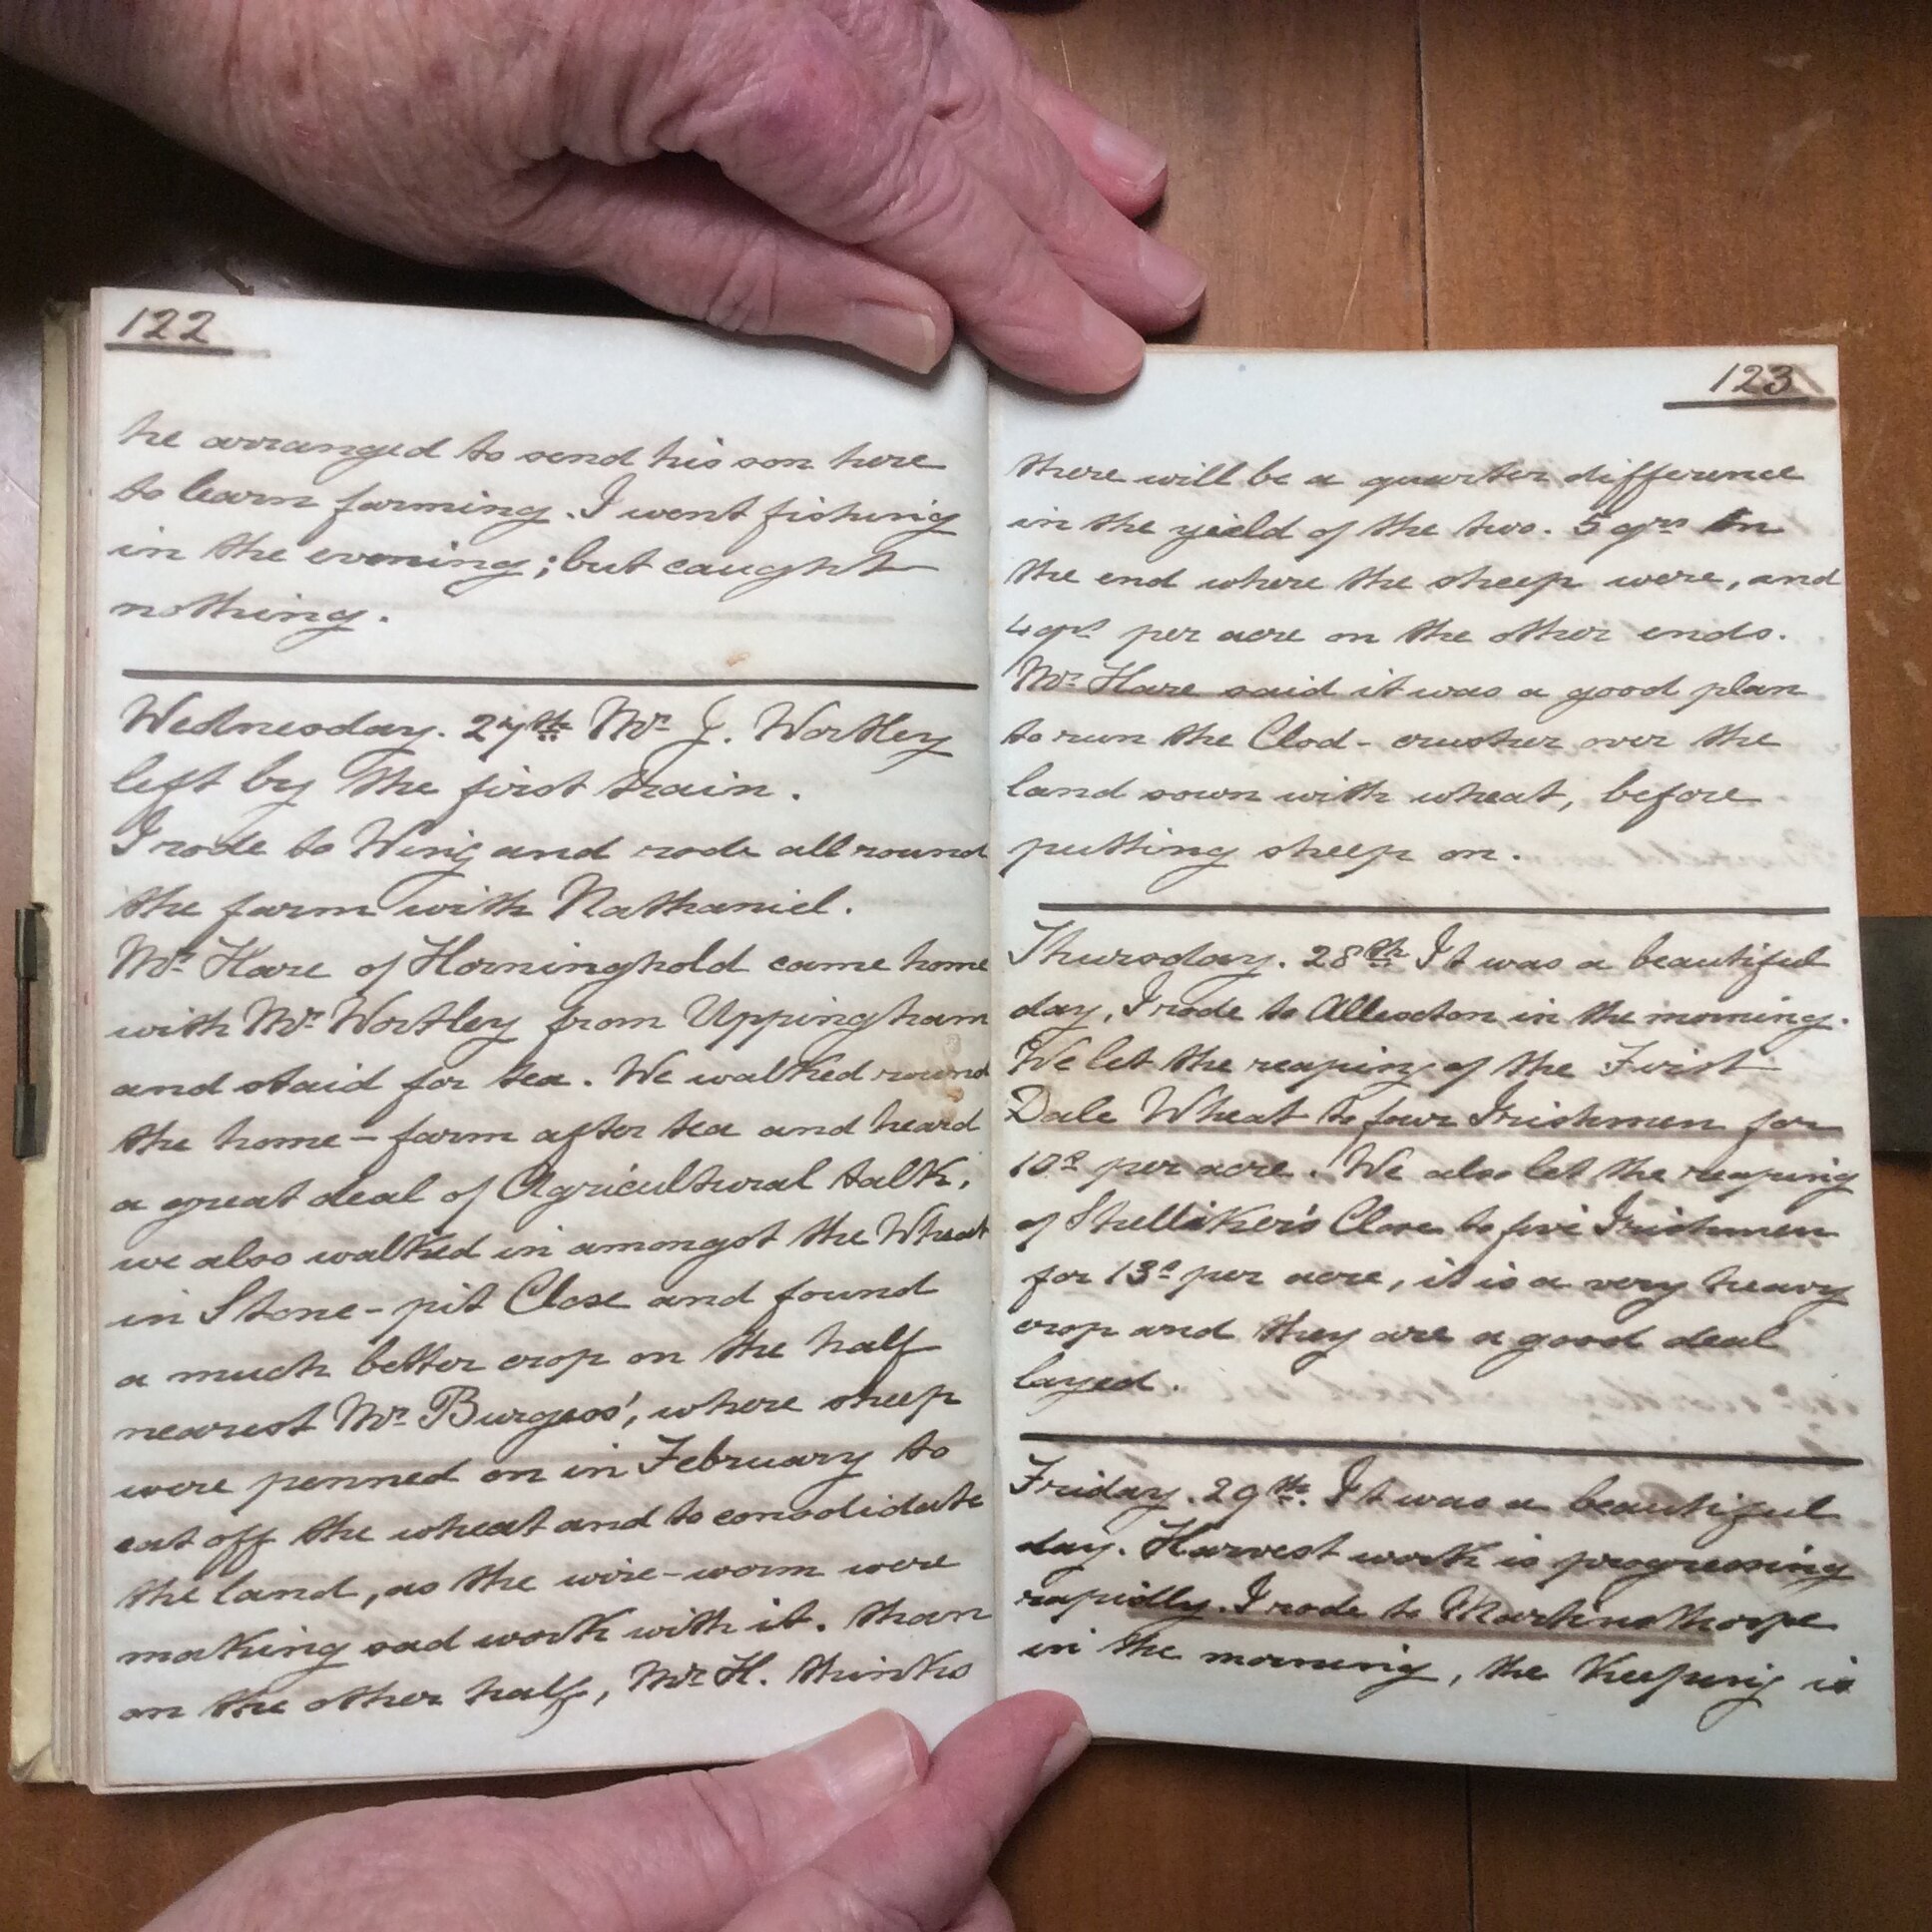 122
he arranged to send his son here
to learn farming. I went fishing
in the evening; but caught
nothing.
Wednesday. 27th Mr J. Wortley
left by the first train.
I rode to Wing and rode all round
the farm with Nathaniel.
Mr Hare of Horninghold came home
with Mr Wortley from Uppingham
and staid for tea. We walked round
the home-farm after tea and heard
a great deal of Agricultural talk,
we also walked in amongst the Wheat
in Stone-pit Close and found
a much better crop on the half
nearest Mr Burgess', where sheep
were penned on in February to
eat off the wheat and to consolidate
the land, as the wire-worm were
making sad work with it. than
on the other half, Mr H. thinks
123
there will be a quarter difference
in the yield of the two. 5 qrs on
the end where the sheep were, and
4 qrs per acre on the other ends.
Mr Hare said it was a good plan
to run the Clod-crusher over the
land sown with wheat, before
putting sheep on.
Thursday. 28th It was a beautiful
day, I rode to Allexton in the morning.
We let the reaping of the
Dale Wheat to four Irishmen for
10s per acre. We also let the reaping
of Close to five Irishmen
for 13s per acre, it is a very heavy
crop and they are a good deal
layed.
Friday. 29th. It was a beautiful
day. Harvest work is progressing
rapidly. I rode to
in the morning, the Keeping is